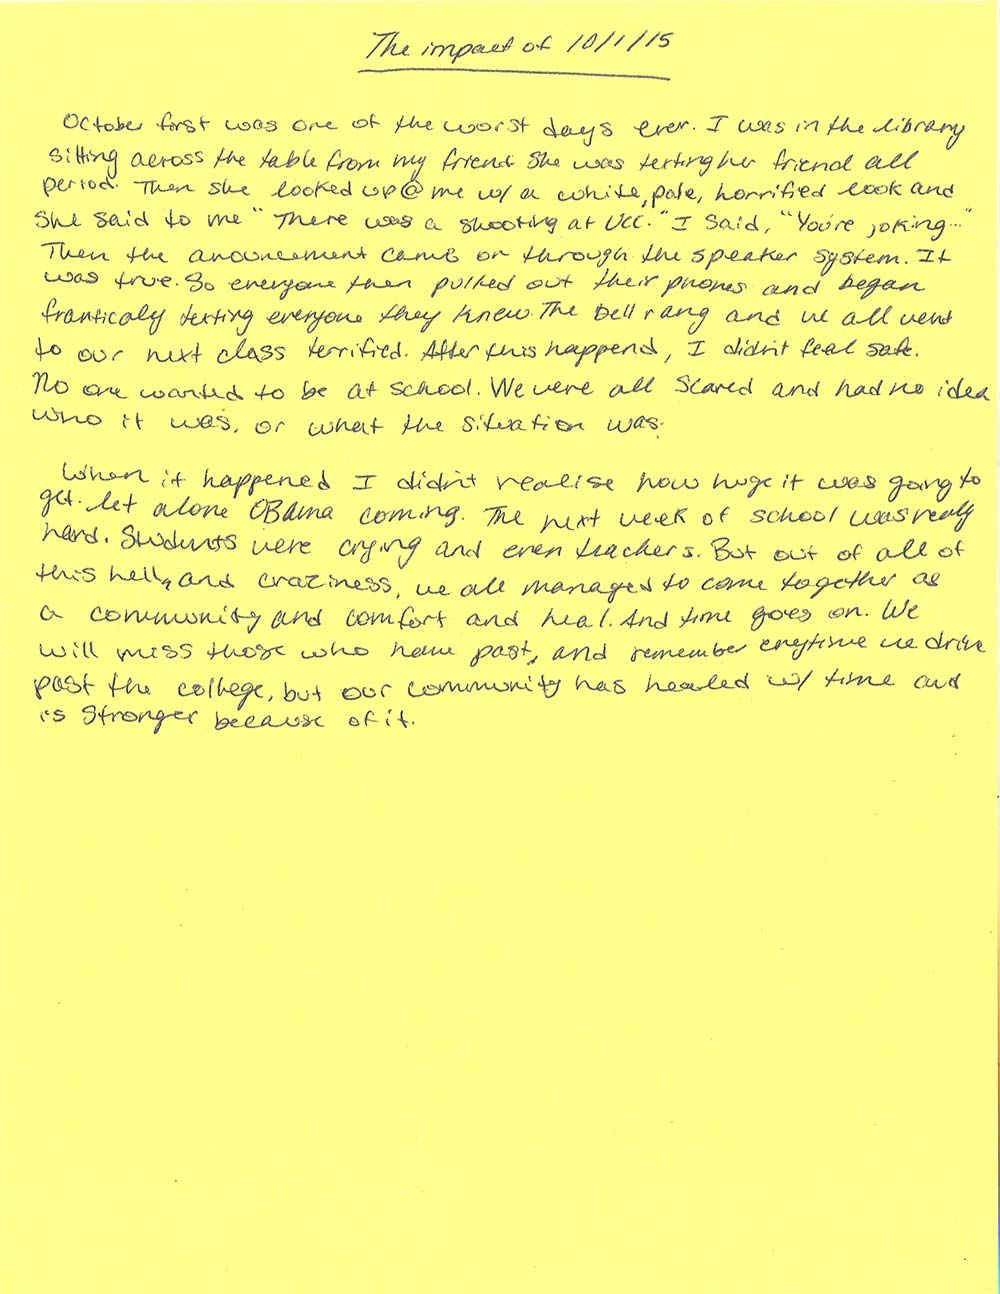 The impact of 10/1/15
October first was one of the worst days ever. I was in the library
sitting across the table from my friend. She was texting her friend all
period. Then she looked up @ me w/ a white, pale, horrified look and
she said to me " There was a shooting at UCC." I said, "You're joking..."
Then the anouncement came on through the speaker system. It
was true. So everyone then pulled out their phones and began
franticaly texting everyone they knew. The bell rang and we all went
to our next class terrified. After this happend, I didn't feel safe.
No one wanted to be at school. We were all scared and had no idea
who it was, or what the situation was.
When it happened I didn't realise how huge it was going to
get. let alone OBama coming. The next week of school was realy
hard. Students were crying and even teachers. But out of all of
this hell, and craziness, we all managed to come together as
a community and comfort and heal. And time goes on. We
will miss those who have past, and remember enytime we drive
past the college, but our community has healed w/ time and
is stronger because of it.